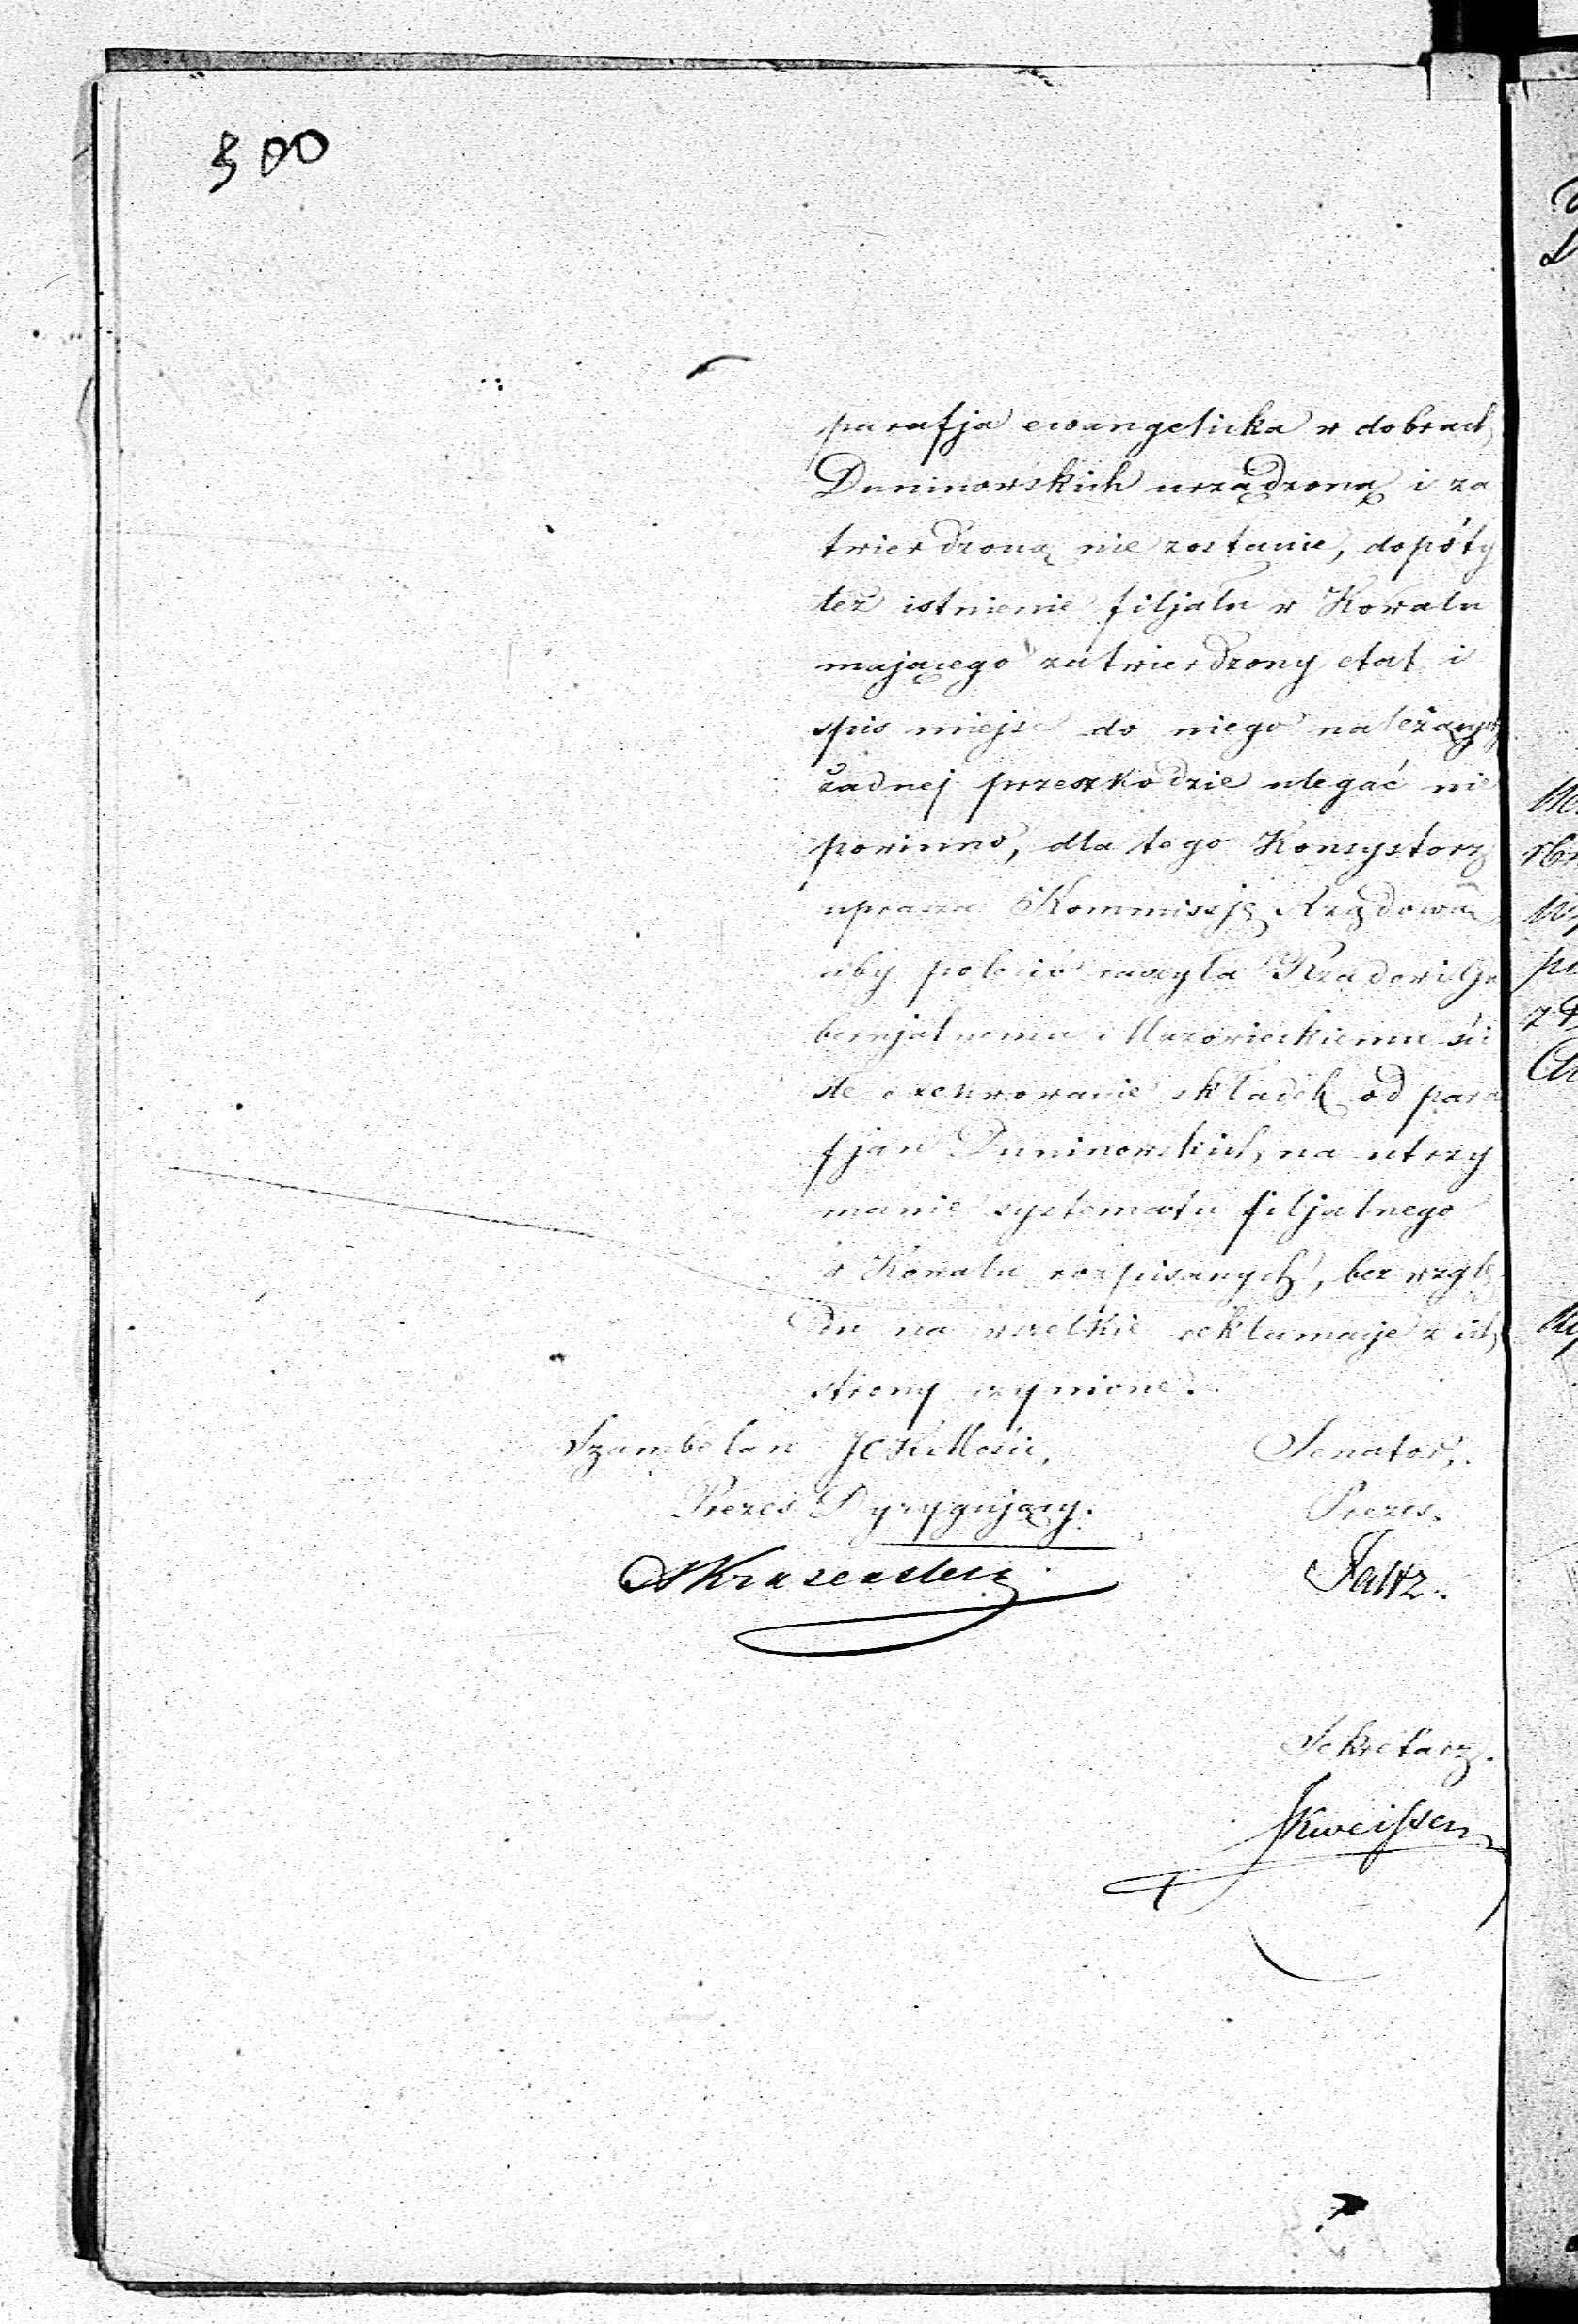 500
parafja ewangelicka w dobrach
Duninowskich urządzoną i za
twierdzoną nie zostanie, dopóty
też istnienie filjału w Kowalu
mającego zatwierdzony etat i
spis miejsc do niego należących
żadnej przeszkodzie ulegać nie
powinno, dla tego Konsystorz
uprasza Kommissję Rządową
aby polecić raczyła Rządowi Gu
bernjalnemu Mazowieckiemu ści
słe exekwowanie składek od para
fjan Duninowskich, na utrzy
manie systematu filjalnego
w Kowalu rozpisanych, bez wzglę
du na wszelkie reklamacje z ich
strony czynione.
Szambelan JCKMości, Senator,
Prezes Dyrygujący. Prezes.
Sekretarz.